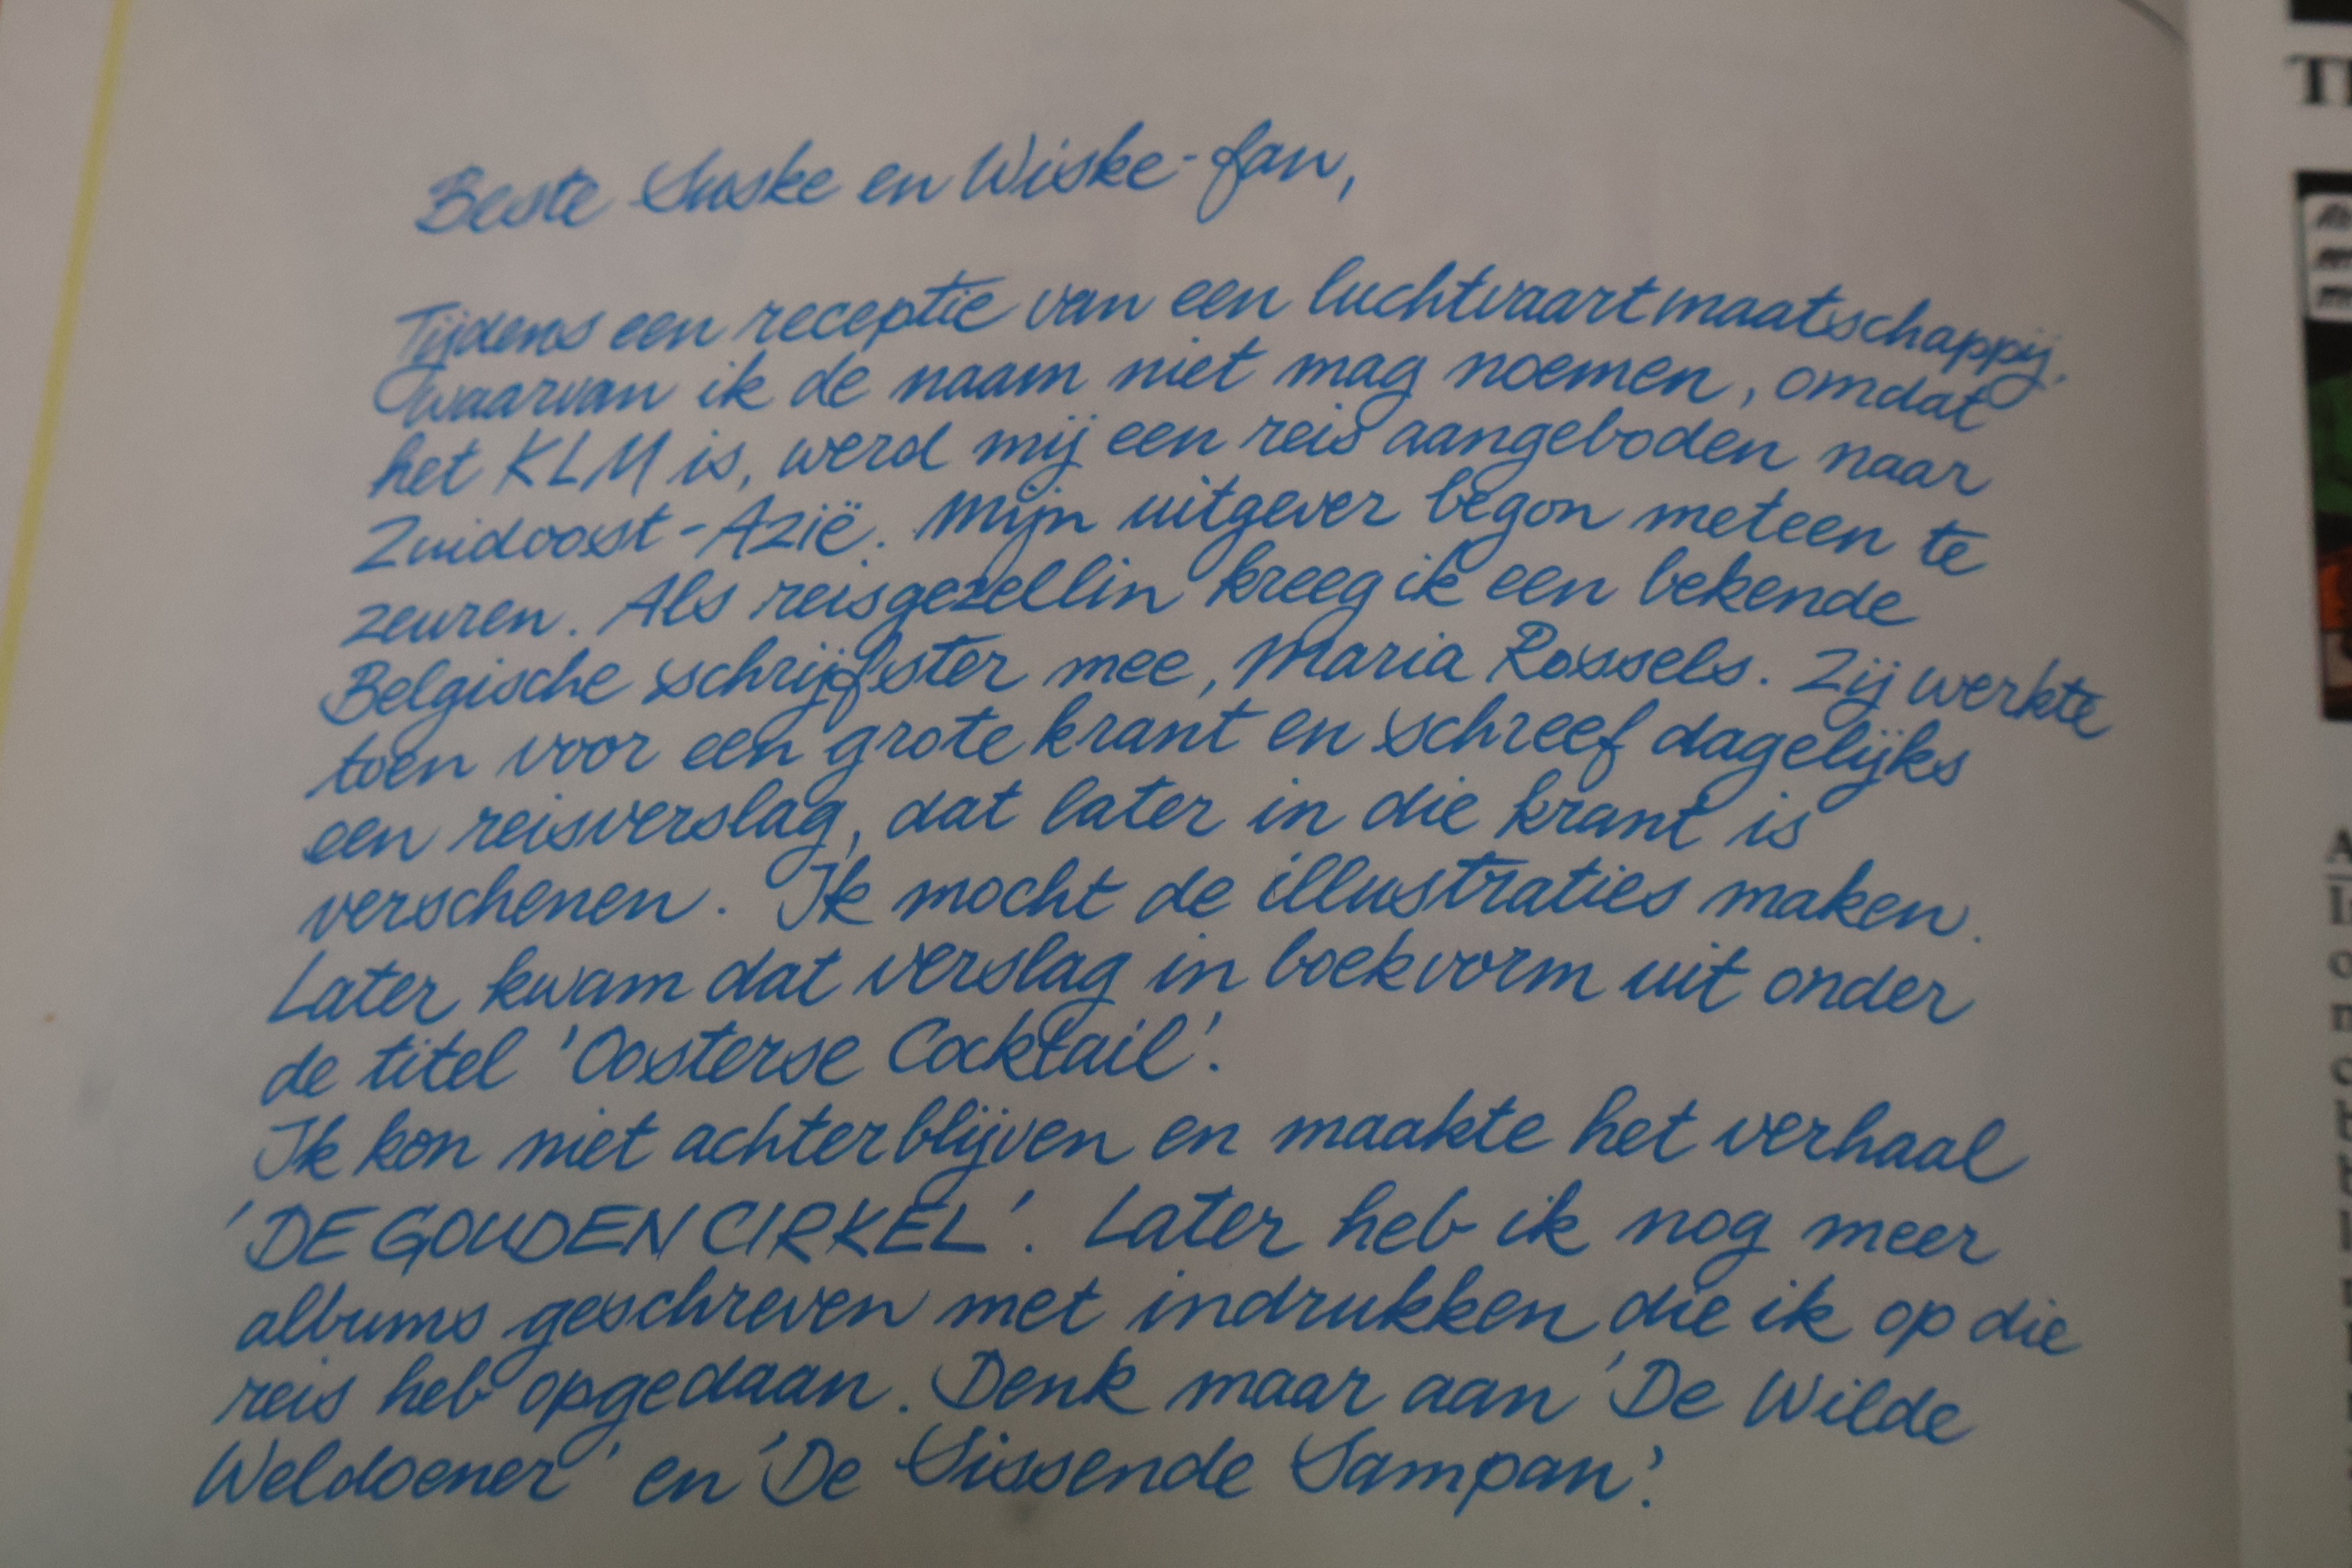 Beste Suske en Wiske-fan,
Tijdens een receptie van een luchtvaartmaatschappij,
waarvan ik de naam niet mag noemen, omdat
het KLM is, werd mij een reis aangeboden naar
Zuidoost-Azië. Mijn uitgever begon meteen te
zeuren. Als reisgezellin kreeg ik een bekende
Belgische schrijfster mee, Maria Rossels. Zij werkte
toen voor een grote krant en schreef dagelijks
een reisverslag, dat later in die krant is
verschenen. Ik mocht de illustraties maken.
Later kwam dat verslag in boekvorm uit onder
de titel 'Oosterse Cocktail'.
Ik kon niet achterblijven en maakte het verhaal
'DE GOUDEN CIRKEL'. Later heb ik nog meer
albums geschreven met indrukken die ik op die
reis heb opgedaan. Denk maar aan 'De Wilde
Weldoener' en 'De Sissende Sampan'.